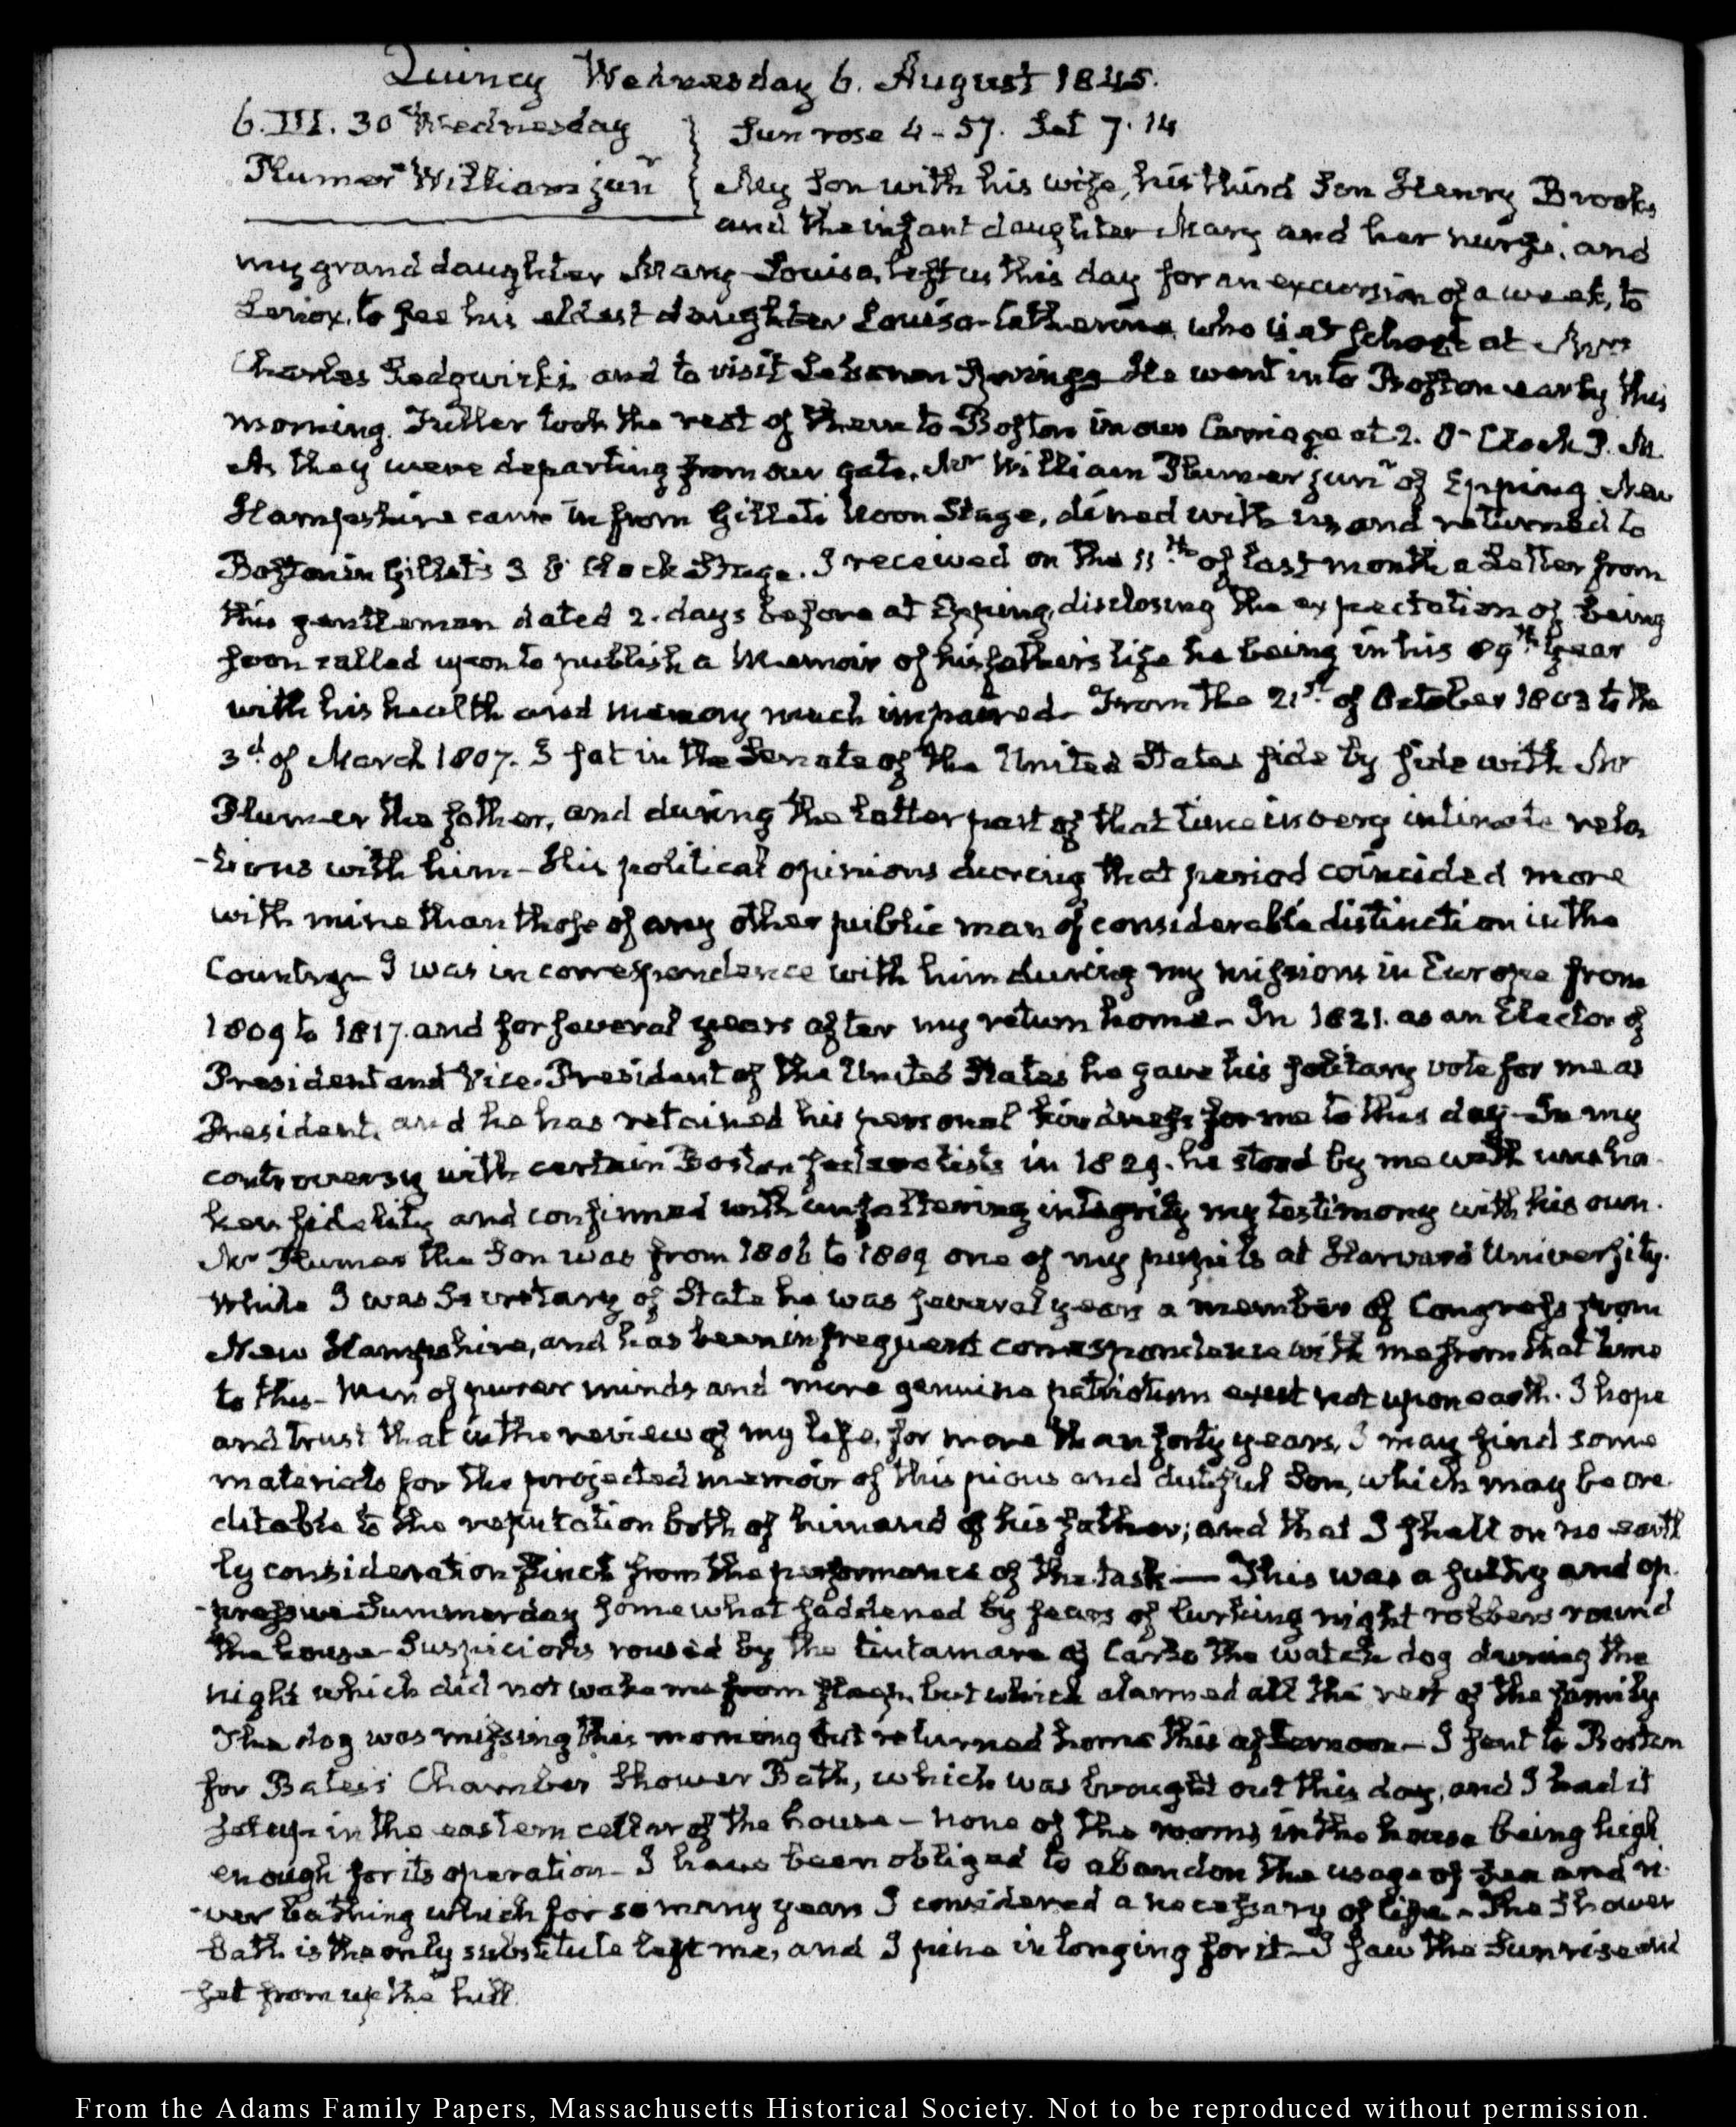 Quincy Wednesday 6. August 1845.
6. III. 30 Wednesday
Plumer William junr
Sun rose 4-57. Set 7.14
My Son with his wife, his third Son Henry Brooks
and the infant daughter Mary and her nurse, and
my grand daughter Mary-Louisa, left us this day for an excursion of a week, to
Lenox, to see his eldest daughter Louisa-Catherine, who is at School at Mrs
Charles Sedgwick's, and to visit Lebanon Springs— He went into Boston early this
morning. Fuller took the rest of them to Boston in our Carriage at 2. O-Clock P.M.
As they were departing from our gate, Mr William Plumer junr of Epping New
Hampshire came in from Gillett's Noon Stage, dined with us, and returned to
Boston in Gillet's 3 O'Clock Stage. I received on the 11th of last month a Letter from
this gentleman dated 2. days before at Epping, disclosing the expectation of being
soon called upon to publish a Memoir of his father's life he being in his 89th year
with his health and memory much impaired— From the 21st of October 1803 to the
3d of March 1807. I sat in the Senate of the United States side by side with Mr
Plumer the father, and during the latter part of that time in very intimate rela
-tions with him— His political opinions during that period coincided more
with mine than those of any other public man of considerable distinction in the
Country— I was in correspondence with him during my missions in Europe from
1809 to 1817. and for several years after my return home— In 1821. as an Elector of
President and Vice-President of the United States he gave his solitary vote for me as
President, and he has retained his personal kindness for me to this day— In my
controversy with certain Boston federalists in 1829. he stood by me with unsha
ken fidelity and confirmed with unfaltering integrity my testimony with his own.
Mr Plumer the Son was from 1806 to 1809 one of my pupils at Harvard University.
While I was Secretary of State he was several years a member of Congress from
New Hampshire, and has been in frequent correspondence with me from that time
to this— Men of purer minds and more genuine patriotism exist not upon earth. I hope
and trust that in the review of my life, for more than forty years, I may find some
materials for the projected memoir of this pious and dutiful Son, which may be cre
ditable to the reputation both of him and of his father; and that I shall on no earth
ly consideration flinch from the performance of the task— This was a sultry and op
-pressive Summer day somewhat saddened by fears of lurking night robbers round
the house— Suspicions roused by the tintamare of Carlo the watch dog during the
night which did not wake me from sleep, but which alarmed all the rest of the family
The dog was missing this morning but returned home this afternoon— I sent to Boston
for Bates's Chamber Shower Bath, which was brought out this day, and I had it
set up in the eastern cellar of the house— none of the rooms in the house being high
enough for its operation— I have been obliged to abandon the usage of sea and ri
-ver bathing which for so many years I considered a necessary of life— The Shower
bath is the only substitute left me, and I pine in longing for it— I saw the Sun rise and
set from up the hill.
From the Adams Family Papers, Massachusetts Historical Society. Not to be reproduced without permission.